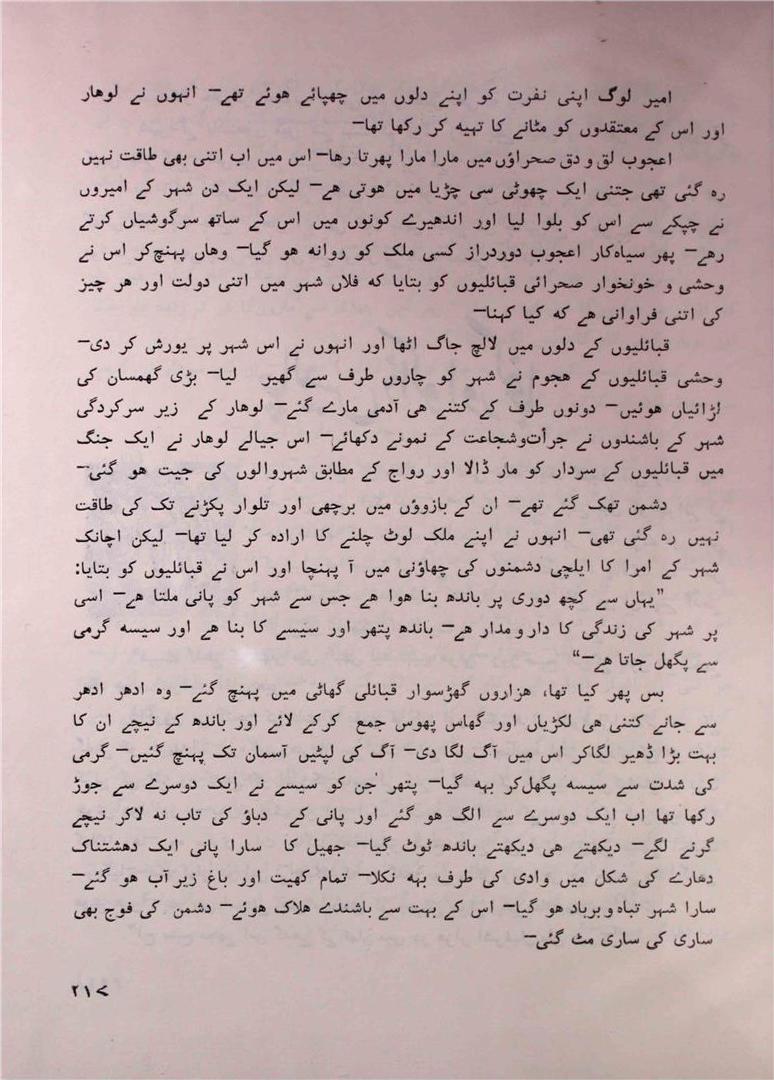 امیر لوگ اپنی نفرت کو اپنے دلوں میں چھپائے ھوئے تھے— انہوں نے لوھار
اور اس کے معتقدوں کو مٹانے کا تہیہ کر رکھا تھا—
اعجوب لق و دق صحراؤں میں مارا مارا پھرتا رھا— اس میں اب اتنی بھی طاقت نہیں
رہ گئی تھی جتنی ایک چھوٹی سی چڑیا میں ھوتی ھے— لیکن ایک دن شہر کے امیروں
نے چپکے سے اس کو بلوا لیا اور اندھیرے کونوں میں اس کے ساتھ سرگوشیاں کرتے
رھے— پھر سیاہکار اعجوب دوردراز کسی ملک کو روانہ ھو گیا— وھاں پہنچ کر اس نے
وحشی و خونخوار صحرائی قبائلیوں کو بتایا کہ فلاں شہر میں اتنی دولت اور ھر چیز
کی اتنی فراوانی ھے کہ کیا کہنا—
قبائلیوں کے دلوں میں لالچ جاگ اٹھا اور انہوں نے اس شہر پر یورش کر دی—
وحشی قبائلیوں کے ھجوم نے شہر کو چاروں طرف سے گھیر لیا— بڑی گھمسان کی
لڑائیاں ھوئیں— دونوں طرف کے کتنے ھی آدمی مارے گئے— لوھار کے زیر سرکردگی
شہر کے باشندوں نے جرأت و شجاعت کے نمونے دکھائے— اس جیالے لوھار نے ایک جنگ
میں قبائلیوں کے سردار کو مار ڈالا اور رواج کے مطابق شہروالوں کی جیت ھو گئی—
دشمن تھک گئے تھے— ان کے بازوؤں میں برچھی اور تلوار پکڑنے تک کی طاقت
نہیں رہ گئی تھی— انہوں نے اپنے ملک لوٹ چلنے کا ارادہ کر لیا تھا— لیکن اچانک
شہر کے امرا کا ایلچی دشمنوں کی چھاؤنی میں آ پہنچا اور اس نے قبائلیوں کو بتایا:
”یہاں سے کچھ دوری پر باندھ بنا ھوا ھے جس سے شہر کو پانی ملتا ھے— اسی
پر شہر کی زندگی کا دار و مدار ھے— باندھ پتھر اور سیسے کا بنا ھے اور سیسہ گرمی
سے پگھل جاتا ھے—“
بس پھر کیا تھا، ھزاروں گھڑسوار قبائلی گھاٹی میں پہنچ گئے— وہ ادھر ادھر
سے جانے کتنی ھی لکڑیاں اور گھاس پھوس جمع کرکے لائے اور باندھ کے نیچے ان کا
بہت بڑا ڈھیر لگاکر اس میں آگ لگا دی— آگ کی لپٹیں آسمان تک پہنچ گئیں— گرمی
کی شدت سے سیسہ پگھل کر بہہ گیا— پتھر جن کو سیسے نے ایک دوسرے سے جوڑ
رکھا تھا اب ایک دوسرے سے الگ ھو گئے اور پانی کے دباؤ کی تاب نہ لاکر نیچے
گرنے لگے— دیکھتے ھی دیکھتے باندھ ٹوٹ گیا— جھیل کا سارا پانی ایک دھشتناک
دھارے کی شکل میں وادی کی طرف بہہ نکلا— تمام کھیت اور باغ زیر آب ھو گئے—
سارا شہر تباہ و برباد ھو گیا— اس کے بہت سے باشندے ھلاک ھوئے— دشمن کی فوج بھی
ساری کی ساری مٹ گئی—
۲۱۷